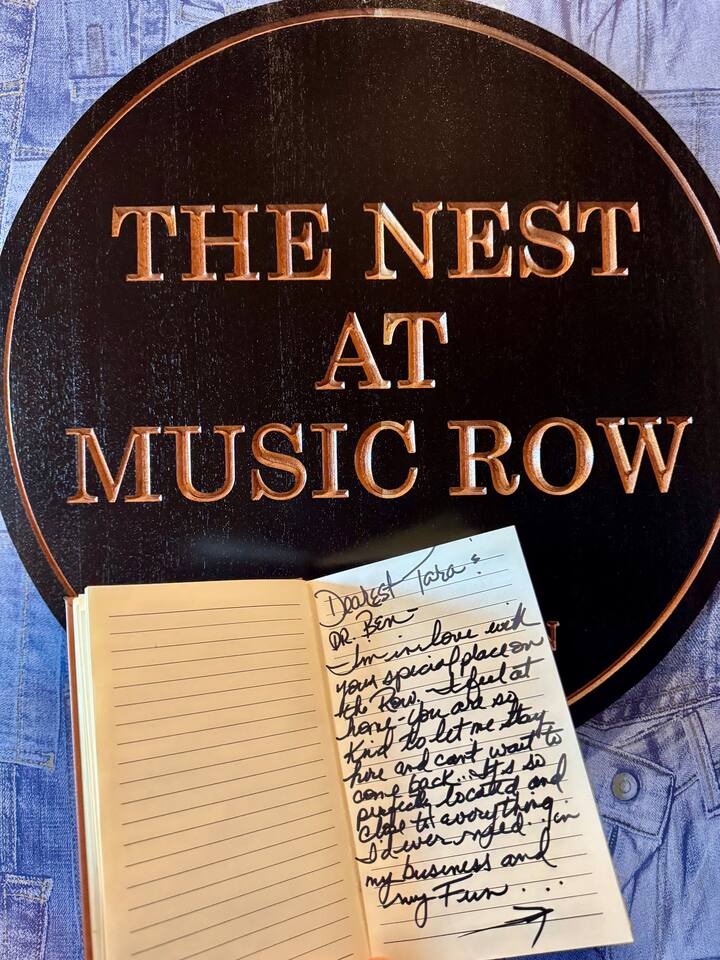 THE NEST
AT
MUSIC ROW
N
Dearest Tara &
DR. Ben -
I'm in love with
your special place on
the Row. I feel at
home - You are so
Kind to let me stay
here and can't wait to
come back... It's so
perfectly located and
close to everything
I'd ever need... in
my business and
my Fun...